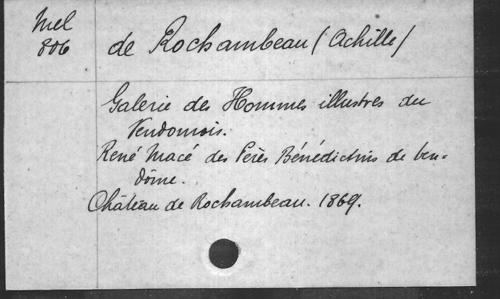 Mel
806
de Rochambeau (Achille)
Galerie des Hommes illustres du
Vendomois.
René Macé des Pères Bénédictins de Ven-
dôme.
Château de Rochambeau. 1869.